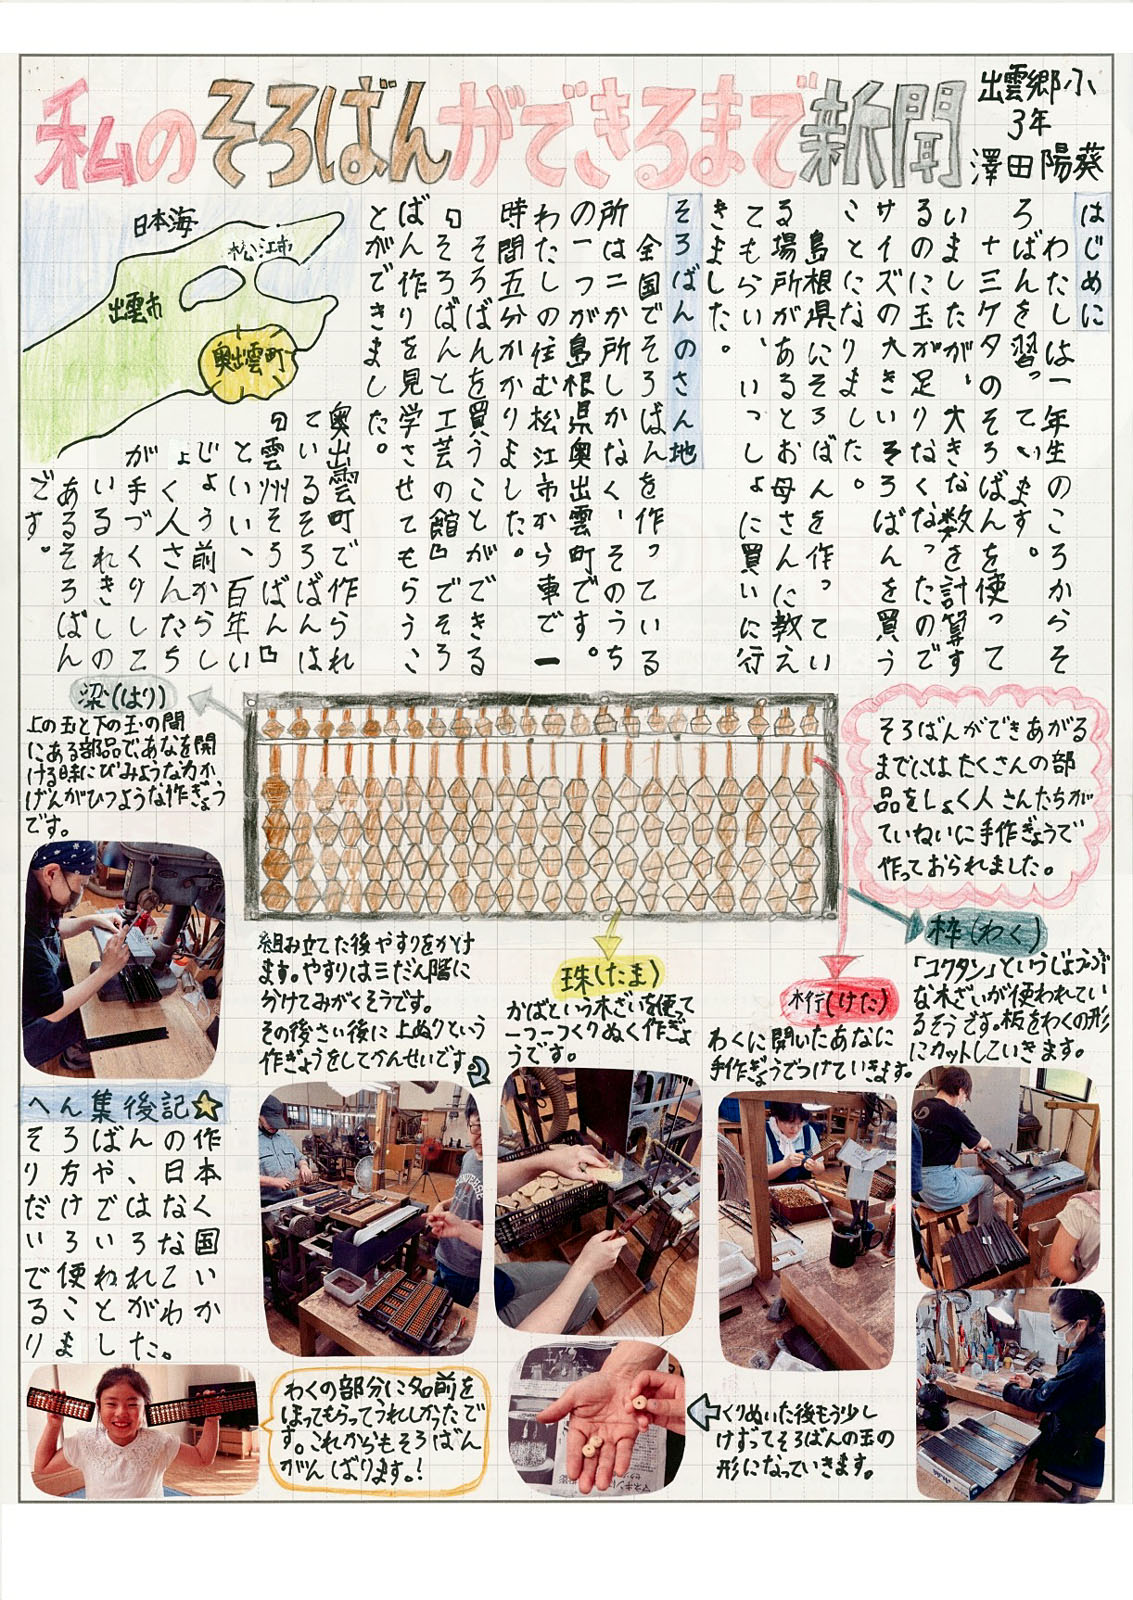 私のそろばんができるまで新聞
出雲郷小
3年
澤田陽葵
はじめに
わたしは一年生のころからそ
ろばんを習っています。
十三ケタのそろばんを使って
いましたが、大きな数を計算す
るのに玉が足りなくなったので
サイズの大きいそろばんを買う
ことになりました。
島根県にそろばんを作ってい
る場所があるとお母さんに教え
てもらい、いっしょに買いに行
きました。
そろばんのさん地
全国でそろばんを作っている
所は二か所しかなく、そのうち
の一つが島根県奥出雲町です。
わたしの住む松江市から車で一
時間五分かかりました。
そろばんを買うことができる
『そろばんと工芸の館』でそろ
ばん作りを見学させてもらうこ
とができました。
奥出雲町で作られ
ているそろばんは
『雲州そろばん』
といい、百年い
じょう前からし
ょく人さんたち
が手づくりして
いるれきしの
あるそろばん
です。
日本海
松江市
出雲市
奥出雲町
そろばんができあがる
までにはたくさんの部
品をしょく人さんたちが
ていねいに手作ぎょうで
作っておられました。
梁(はり)
上の玉と下の玉の間
にある部品で、あなを開
ける時にびみょうな力か
げんがひつような作ぎょう
です。
枠(わく)
「コクタン」というじょうぶ
な木ざいが使われてい
るそうです。板をわくの形
にカットしていきます。
桁(けた)
わくに開いたあなに
手作ぎょうでつけていきます。
珠(たま)
かばという木ざいを使って
一つ一つくりぬく作ぎょ
うです。
組み立てた後やすりをかけ
ます。やすりは三だん階に
分けてみがくそうです。
その後さい後に上ぬりという
作ぎょうをしてかんせいです。
くりぬいた後もう少し
けずってそろばんの玉の
形になっていきます。
へん集後記
そろばんの作
り方や、日本
だけではなく
いろいろな国
で使われてい
ることがわか
りました。
わくの部分に名前を
ほってもらってうれしかったで
す。これからもそろばん
がんばります。!